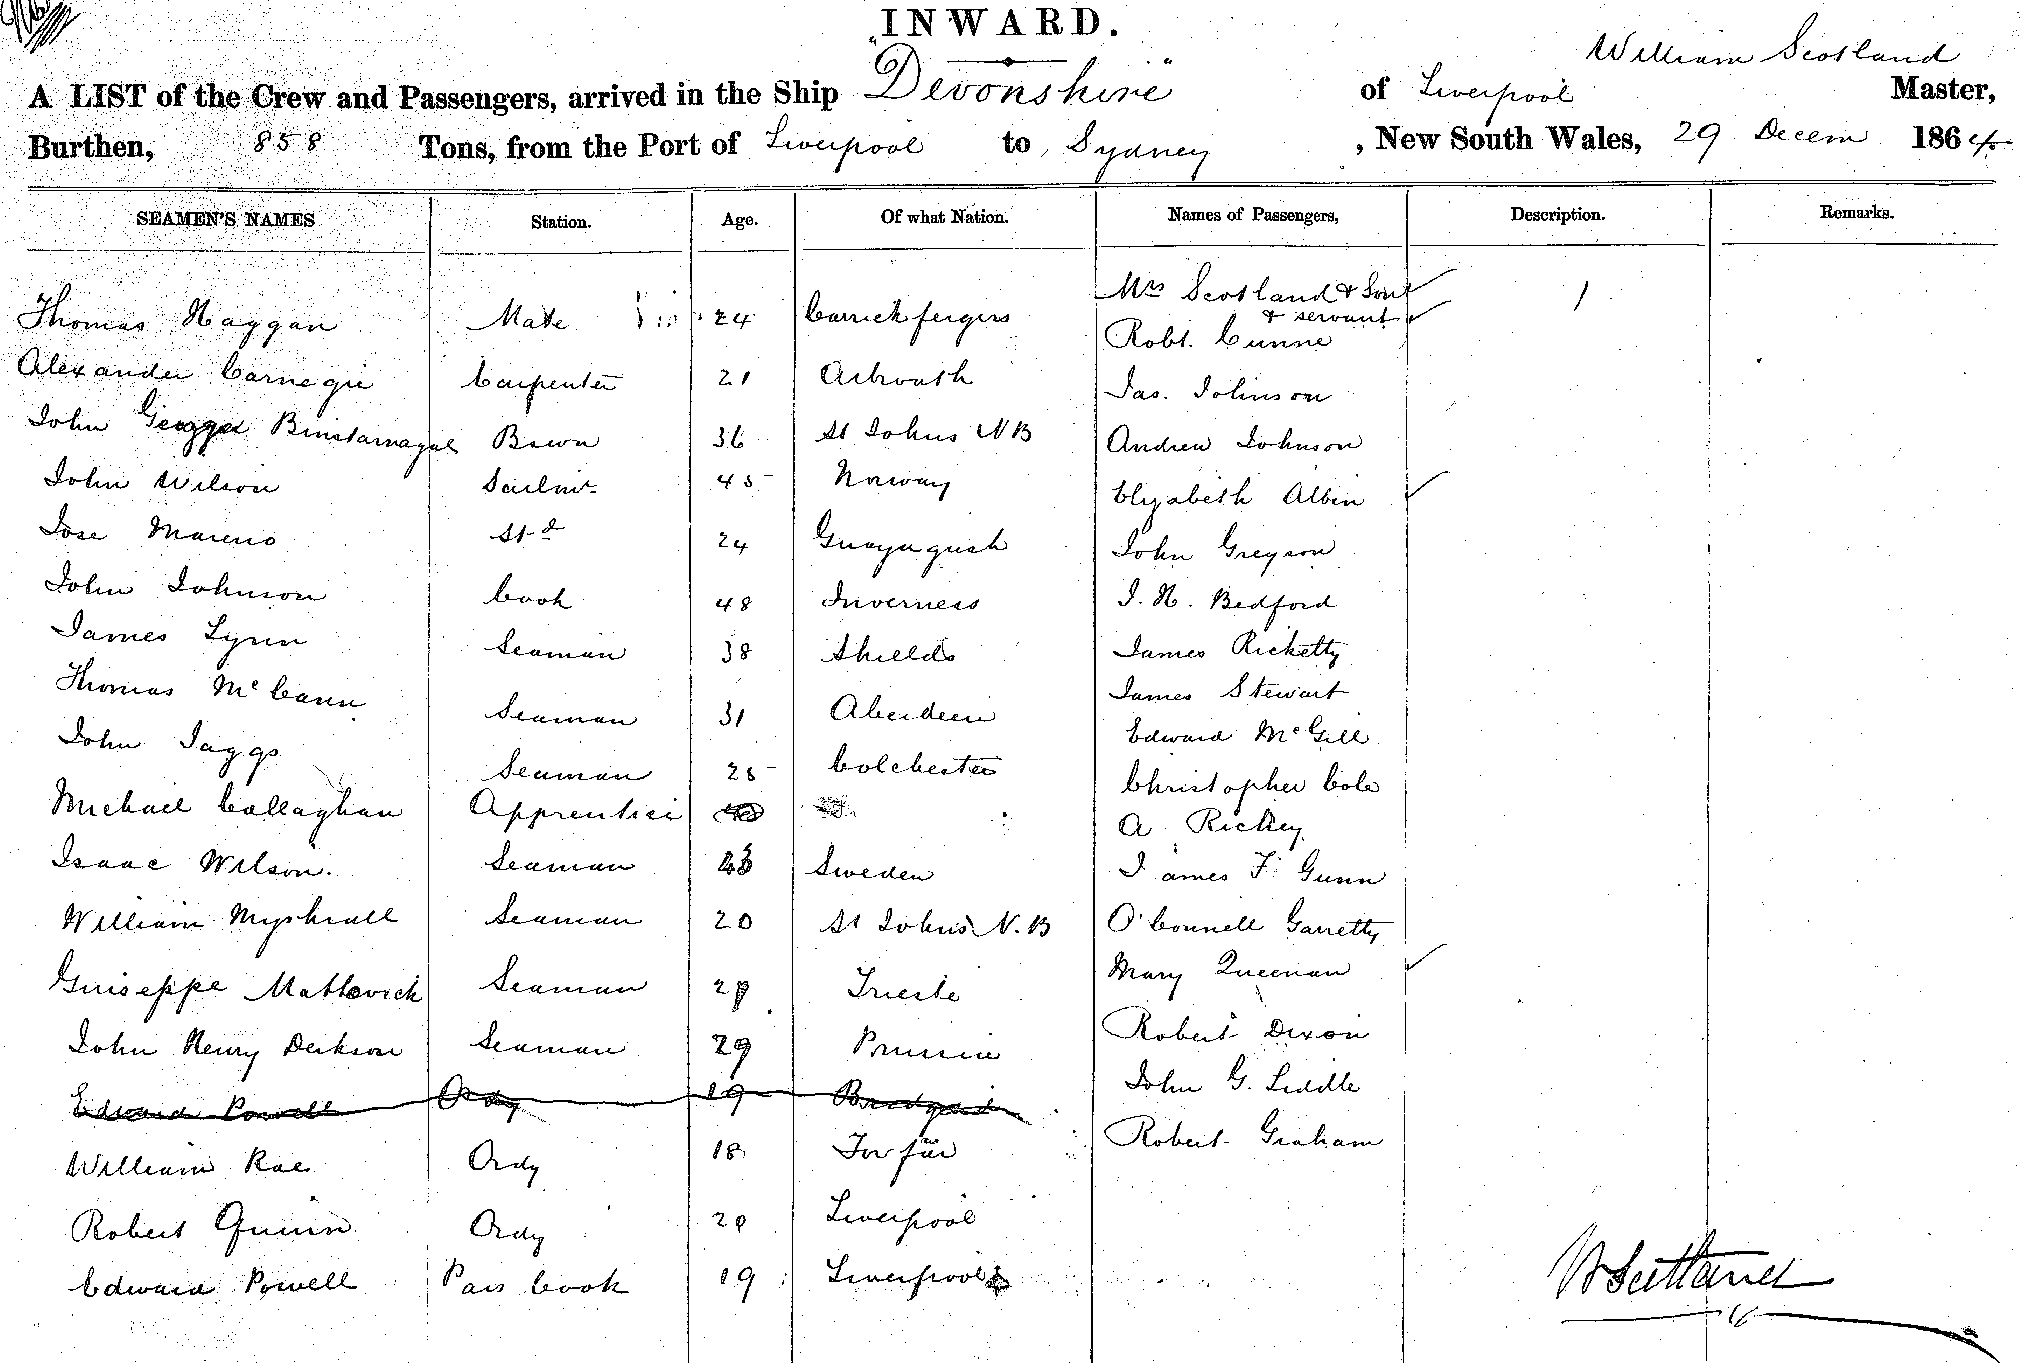 INWARD.
William Scotland
A LIST of the Crew and Passengers, arrived in the Ship "Devonshire" of Liverpool Master,
Burthen, 858 Tons, from the Port of Liverpool to Sydney, New South Wales, 29 Decem 1864
SEAMEN'S NAMES Station. Age. Of what Nation. Names of Passengers, Description. Remarks.
Thomas Haggan Mate 24 Carrickfergus Mrs Scotland & Son 1
& servant
Robt. Cunne
Alexander Carnegie Carpenter 21 Arbroath Jas. Johnson
John George Bosun 36 St Johns NB Andrew Johnson
John Wilson Sailmr 45 Norway Elizabeth Albin
Jose Moreno Std 24 John Greyson
John Johnson Cook 48 Inverness J. H. Bedford
James Lynn Seaman 38 Shields James Ricketty
Thomas McCann Seaman 31 Aberdeen James Stewart
Edward McGill
John Jaggs Seaman 25 Colchester Christopher Cole
Michael Callaghan Apprentice A. Rickey
Isaac Wilson. Seaman Sweden James F. Gunn
William Myshrall Seaman 20 St Johns N.B O'Connell Garretty
Guiseppe Mattovich Seaman Trieste Mary Queenan
John Henry Derkson Seaman 29 Prussia Robert Dixon
Edward Powell Ordy 19 John G. Liddle
William Rae Ordy 18 Forfar Robert Graham
Robert Quinn Ordy 20 Liverpool
Edward Powell Pass Cook 19 Liverpool
W Scotland